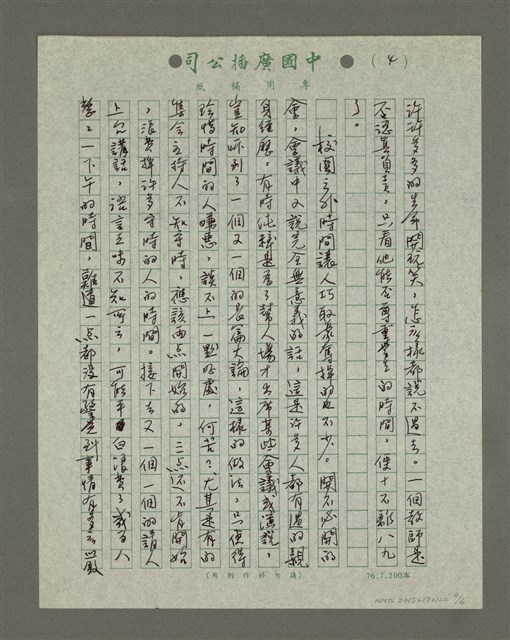 中國廣播公司
（4）
專用稿紙
許許多多的生命開玩笑，怎麼樣都說不過去。一個教師是
否認真負責，只看他能否尊重學生的時間，便十不離八九
了。
校園之外時間讓人巧取豪奪掉的也不少。開不必開的
會，會議中又說完全無意義的話，這是許多人都有過的親
身經歷。有時純粹是為了幫人場才出席某些會議或演說，
豈知聽到了一個又一個的長篇大論，這樣的做法，只使得
珍惜時間的人嫌惡，談不上一點好處，何苦？尤其是有的
集會主持人不知守時，應該兩点開始的，三点還不肯開始
，浪費掉許多守時的人的時間。接下去又一個一個的請人
上台講話，語言乏味不知所云，可能平白浪費了幾百人
整整一下午的時間，難道一点都沒有警覺到事情有多麼嚴
（請勿移作別用）
76.7.200本